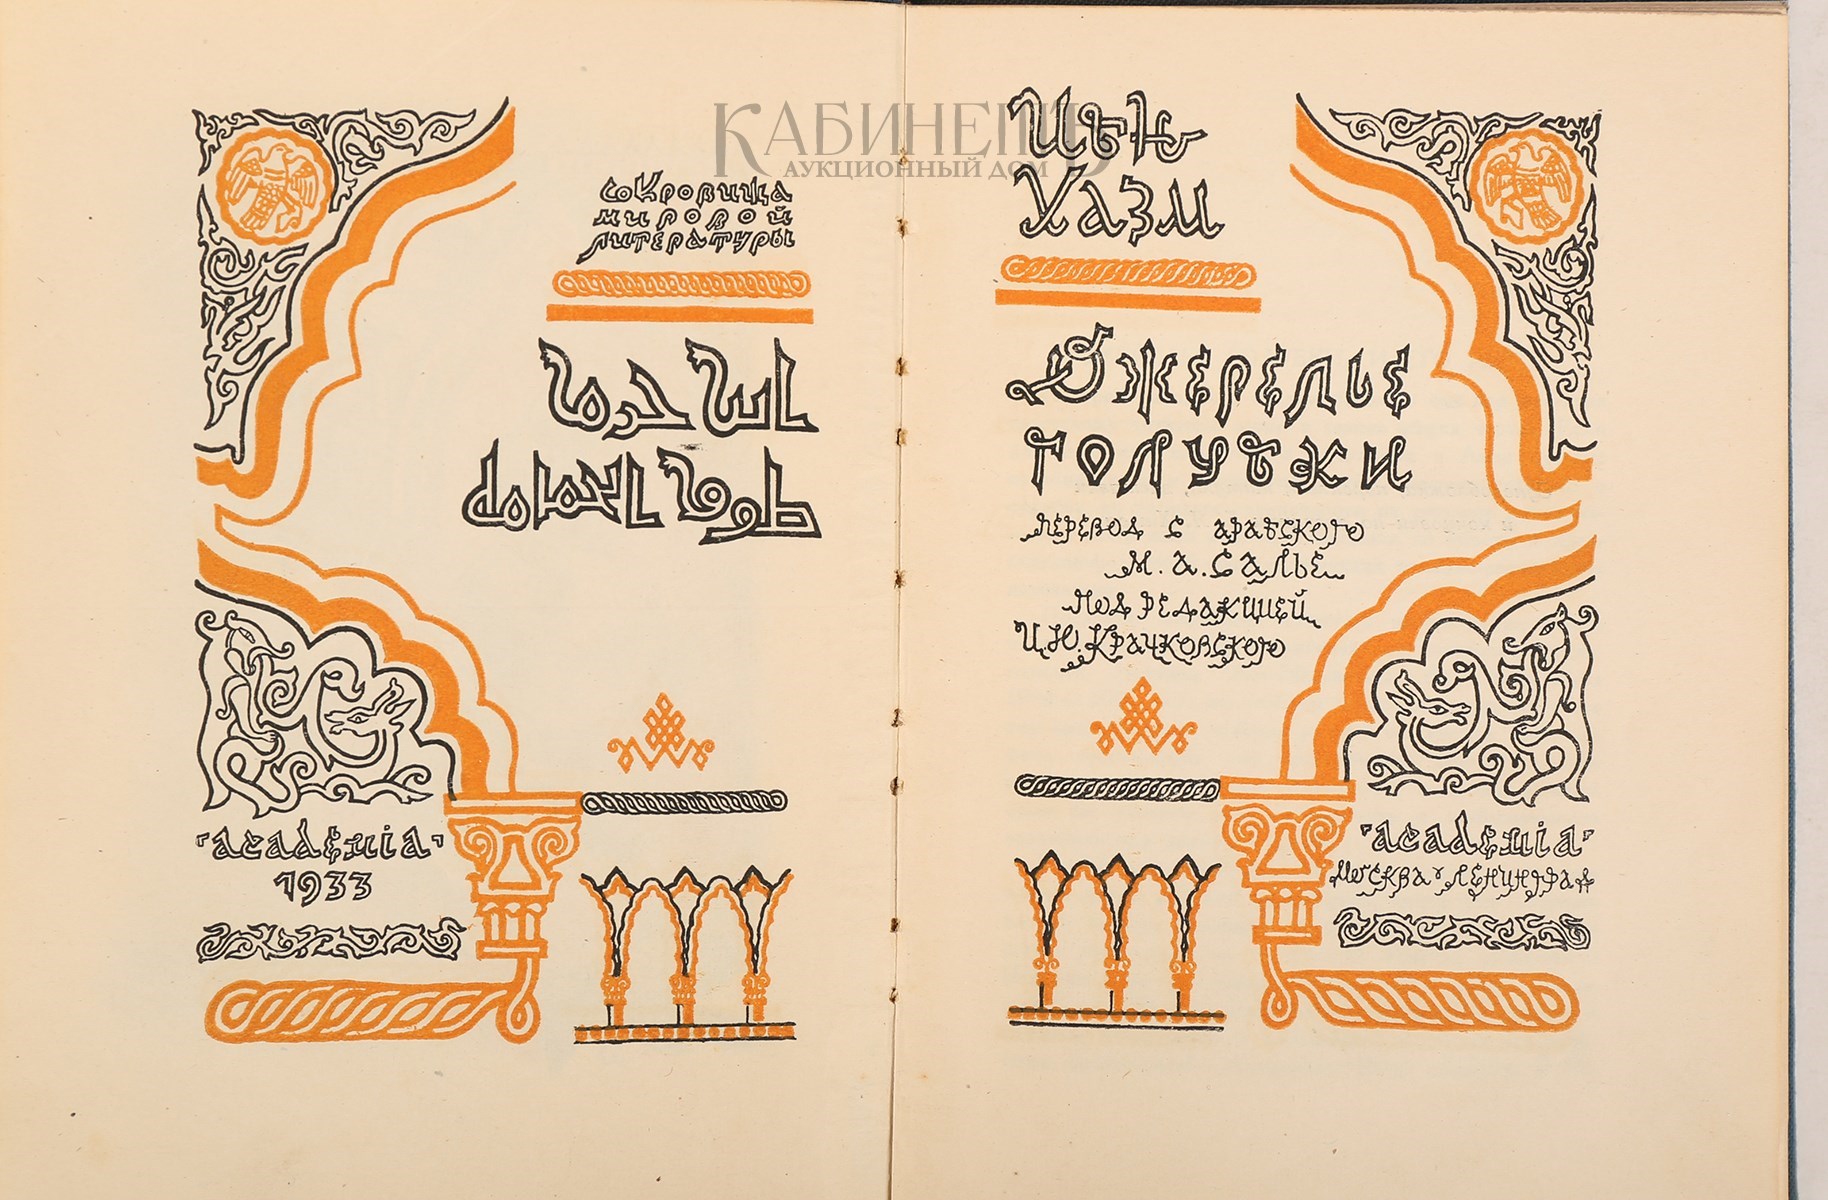 КАБИНЕТЪ
АУКЦИОННЫЙ ДОМ
СОКРОВИЩА
МИРОВОЙ
ЛИТЕРАТУРЫ
ابن حزم
طوق الحمامة
"ACADEMIA"
1933
ИБН
ХАЗМ
ОЖЕРЕЛЬЕ
ГОЛУБКИ
ПЕРЕВОД С АРАБСКОГО
М.А.САЛЬЕ
ПОД РЕДАКЦИЕЙ
И.Ю.КРАЧКОВСКОГО
"ACADEMIA"
МОСКВА ЛЕНИНГРАД